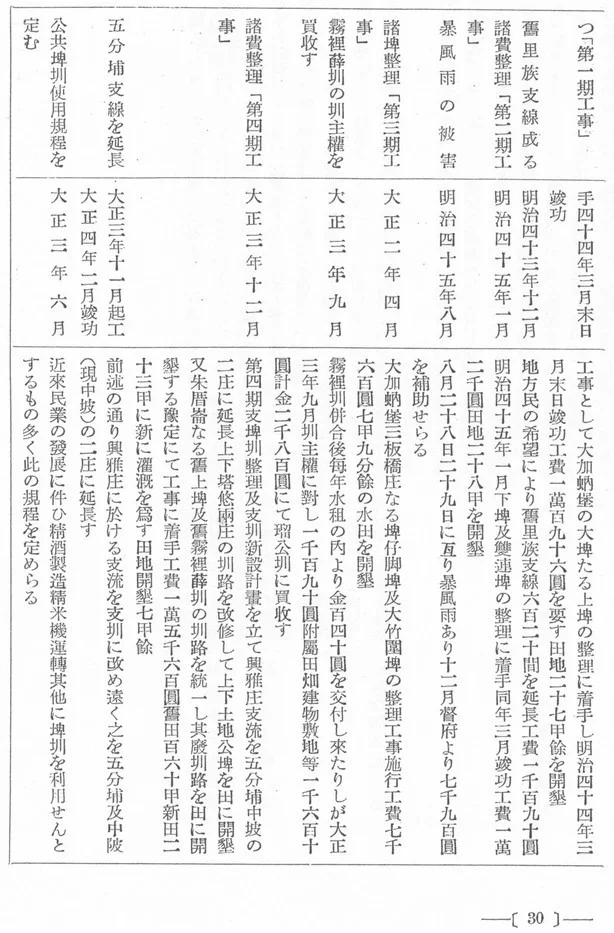 つ「第一期工事」
手四十四年三月末日
竣功
工事として大加蚋堡の大埤たる上埤の整理に着手し明治四十四年三
月末日竣功工費一萬百九十六圓を要す田地二十七甲餘を開墾
舊里族支線成る
明治四十三年十二月
地方民の希望により舊里族支線六百二十間を延長工費一千百九十圓
諸費整理「第二期工
事」
明治四十五年一月
明治四十五年一月下埤及雙連埤の整理に着手同年三月竣功工費一萬
二千圓田地二十八甲を開墾
暴風雨の被害
明治四十五年八月
八月二十八日二十九日に亙り暴風雨あり十二月督府より七千九百圓
を補助せらる
諸埤整理「第三期工
事」
大正二年四月
大加蚋堡三板橋庄なる埤仔脚埤及大竹圍埤の整理工事施行工費七千
六百圓七甲九分餘の水田を開墾
霧裡薛圳の圳主權を
買收す
大正三年九月
霧裡圳併合後每年水租の內より金百四十圓を交付し來たりしが大正
三年九月圳主權に對し一千百九十圓附屬田畑建物敷地等一千六百十
圓計金二千八百圓にて瑠公圳に買收す
諸費整理「第四期工
事」
大正三年十二月
第四期支埤圳整理及支圳新設計畫を立て興雅庄支流を五分埔中坡の
二庄に延長上下塔悠兩庄の圳路を改修して上下土地公埤を田に開墾
又朱厝崙なる舊上埤及舊霧裡薛圳の圳路を統一し其廢圳路を田に開
墾する豫定にて工事に着手工費一萬五千六百圓舊田百六十甲新田二
十三甲に新に灌漑を爲す田地開墾七甲餘
五分埔支線を延長
大正三年十一月起工
大正四年二月竣功
前述の通り興雅庄に於ける支流を支圳に改め遠く之を五分埔及中陂
(現中坡)の二庄に延長す
公共埤圳使用規程を
定む
大正三年六月
近來民業の發展に伴ひ精酒製造精米機運轉其他に埤圳を利用せんと
するもの多く此の規程を定めらる
—〔 30 〕—